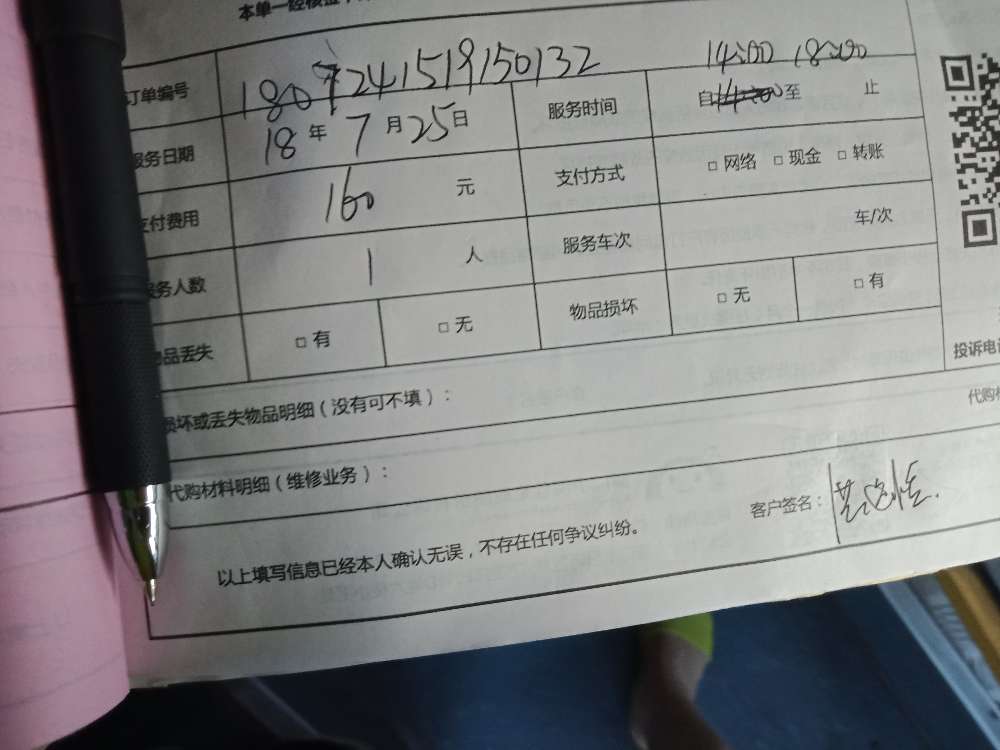 本单一经核
订单编号 1807241519150132
服务日期 18 年 7 月 25 日 服务时间 14:00 18:00 自 至 止
支付费用 160 元 支付方式 □ 网络 □ 现金 □ 转账
服务人数 1 人 服务车次 车/次
物品丢失 □ 有 □ 无 物品损坏 □ 无 □ 有
投诉电
损坏或丢失物品明细（没有可不填）：
代购材料明细（维修业务）：
代购
以上填写信息已经本人确认无误，不存在任何争议纠纷。 客户签名：